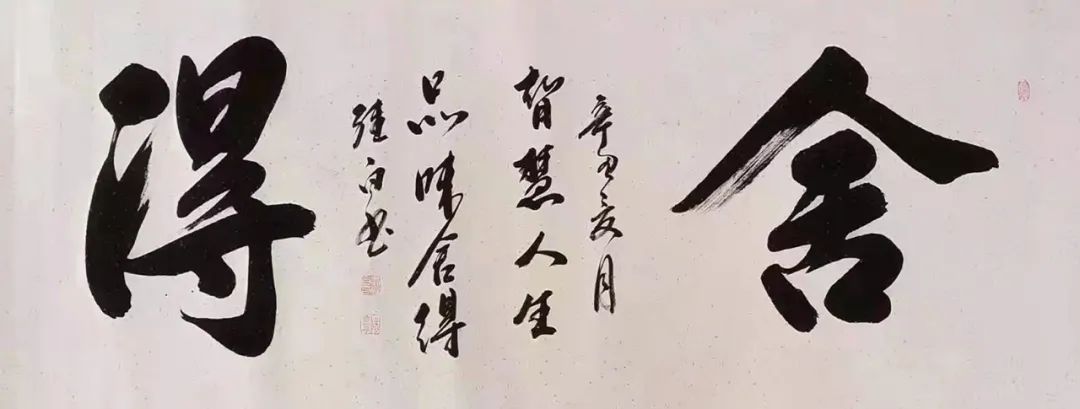 舍
辛丑亥月
智慧人生
品味舍得
强白书
得